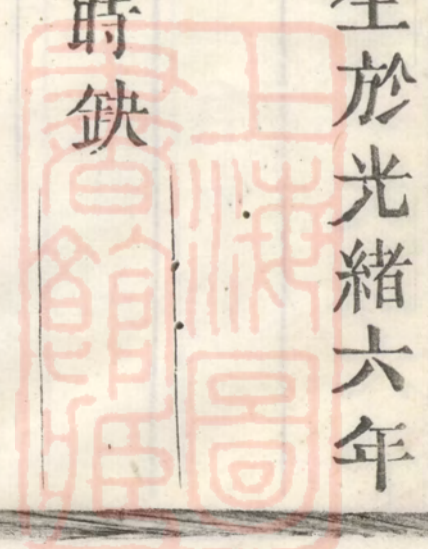 生於光緒六年
時缺
上海圖
書館